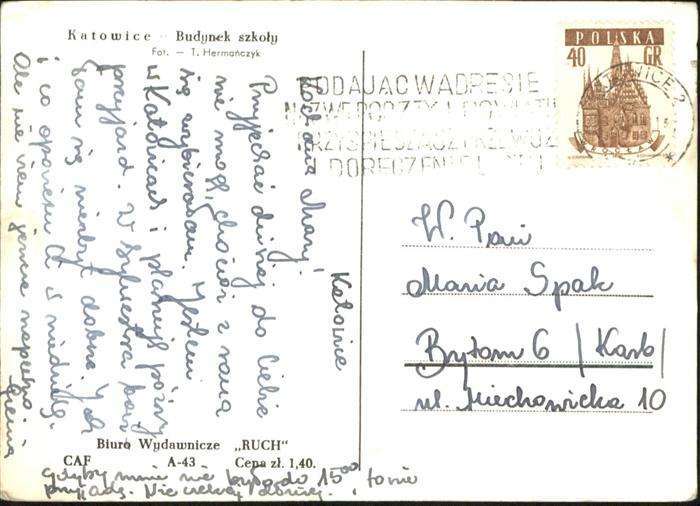 Katowice – Budynek szkoły
Fot. – T. Hermańczyk
POLSKA
40 GR
KATOWICE 2
PODAJĄC W ADRESIE
NAZWĘ POCZTY I POWIATU
PRZYSPIESZACZ PRZEWÓZ
I DORĘCZENIE
Katowice
Kochana Mary!
Przyjechać dzisiaj do Ciebie
nie mogę, chociaż z rana
się wybierałam. Jestem
w Katowicach i planuję późny
przyjazd. W Sylwestra
się niezbyt dobrze
i co opowiem Ci w niedzielę.
Ale nie wiem jeszcze napewno.
Gdyby mnie nie było do 15⁰⁰, to nie
przyjadę. Nie czekaj dłużej.
W. Pani
Maria Spak
Bytom 6 /Karb/
ul. Miechowicka 10
Biuro Wydawnicze „RUCH"
CAF A-43 Cena zł. 1,40.